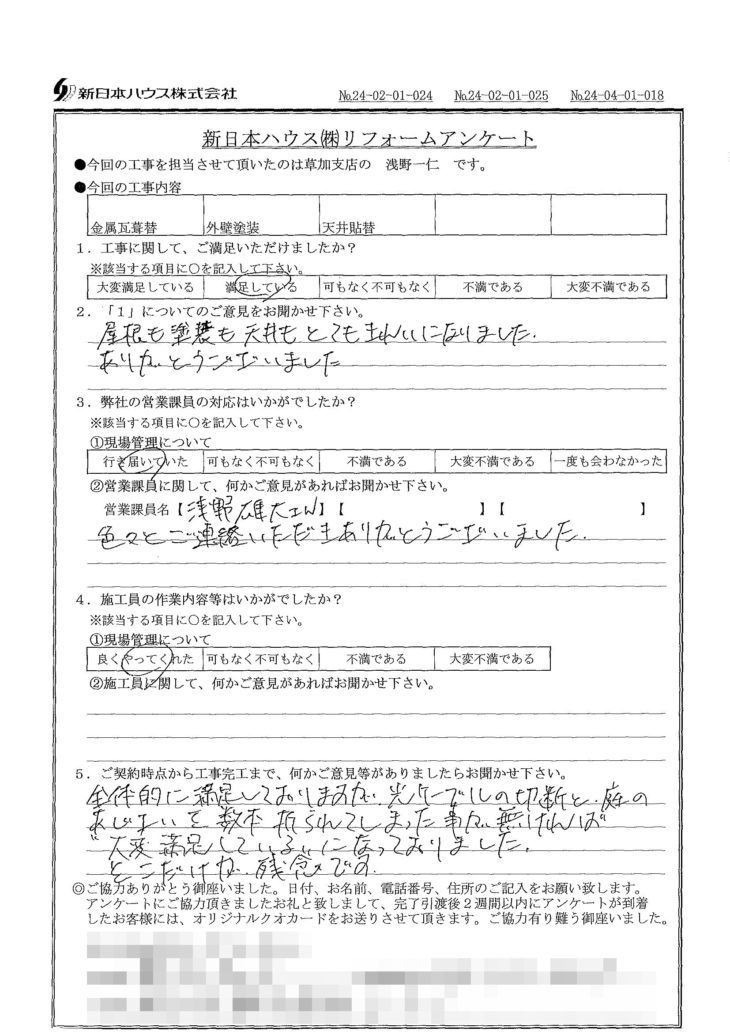 新日本ハウス株式会社 №24-02-01-024 №24-02-01-025 №24-04-01-018
新日本ハウス㈱リフォームアンケート
●今回の工事を担当させて頂いたのは草加支店の 浅野一仁 です。
●今回の工事内容
金属瓦葺替 外壁塗装 天井貼替
1．工事に関して、ご満足いただけましたか？
※該当する項目に○を記入して下さい。
大変満足している 満足している 可もなく不可もなく 不満である 大変不満である
2．「1」についてのご意見をお聞かせ下さい。
屋根も塗装も天井もとてもきれいになりました.
ありがとうございました
3．弊社の営業課員の対応はいかがでしたか？
※該当する項目に○を記入して下さい。
①現場管理について
行き届いていた 可もなく不可もなく 不満である 大変不満である 一度も会わなかった
②営業課員に関して、何かご意見があればお聞かせ下さい。
営業課員名【浅野雄大さん】【 】【 】
色々とご連絡いただきありがとうございました.
4．施工員の作業内容等はいかがでしたか？
※該当する項目に○を記入して下さい。
①現場管理について
良くやってくれた 可もなく不可もなく 不満である 大変不満である
②施工員に関して、何かご意見があればお聞かせ下さい。
5．ご契約時点から工事完工まで、何かご意見等がありましたらお聞かせ下さい。
全体的に満足しておりますが、光ケーブルの切断と、庭の
を数本折られてしまった事が無ければ
"大変満足している"になっておりました.
そこだけが、残念です
◎ご協力ありがとう御座いました。日付、お名前、電話番号、住所のご記入をお願い致します。
アンケートにご協力頂きましたお礼と致しまして、完了引渡後２週間以内にアンケートが到着
したお客様には、オリジナルクオカードをお送りさせて頂きます。ご協力有り難う御座いました。